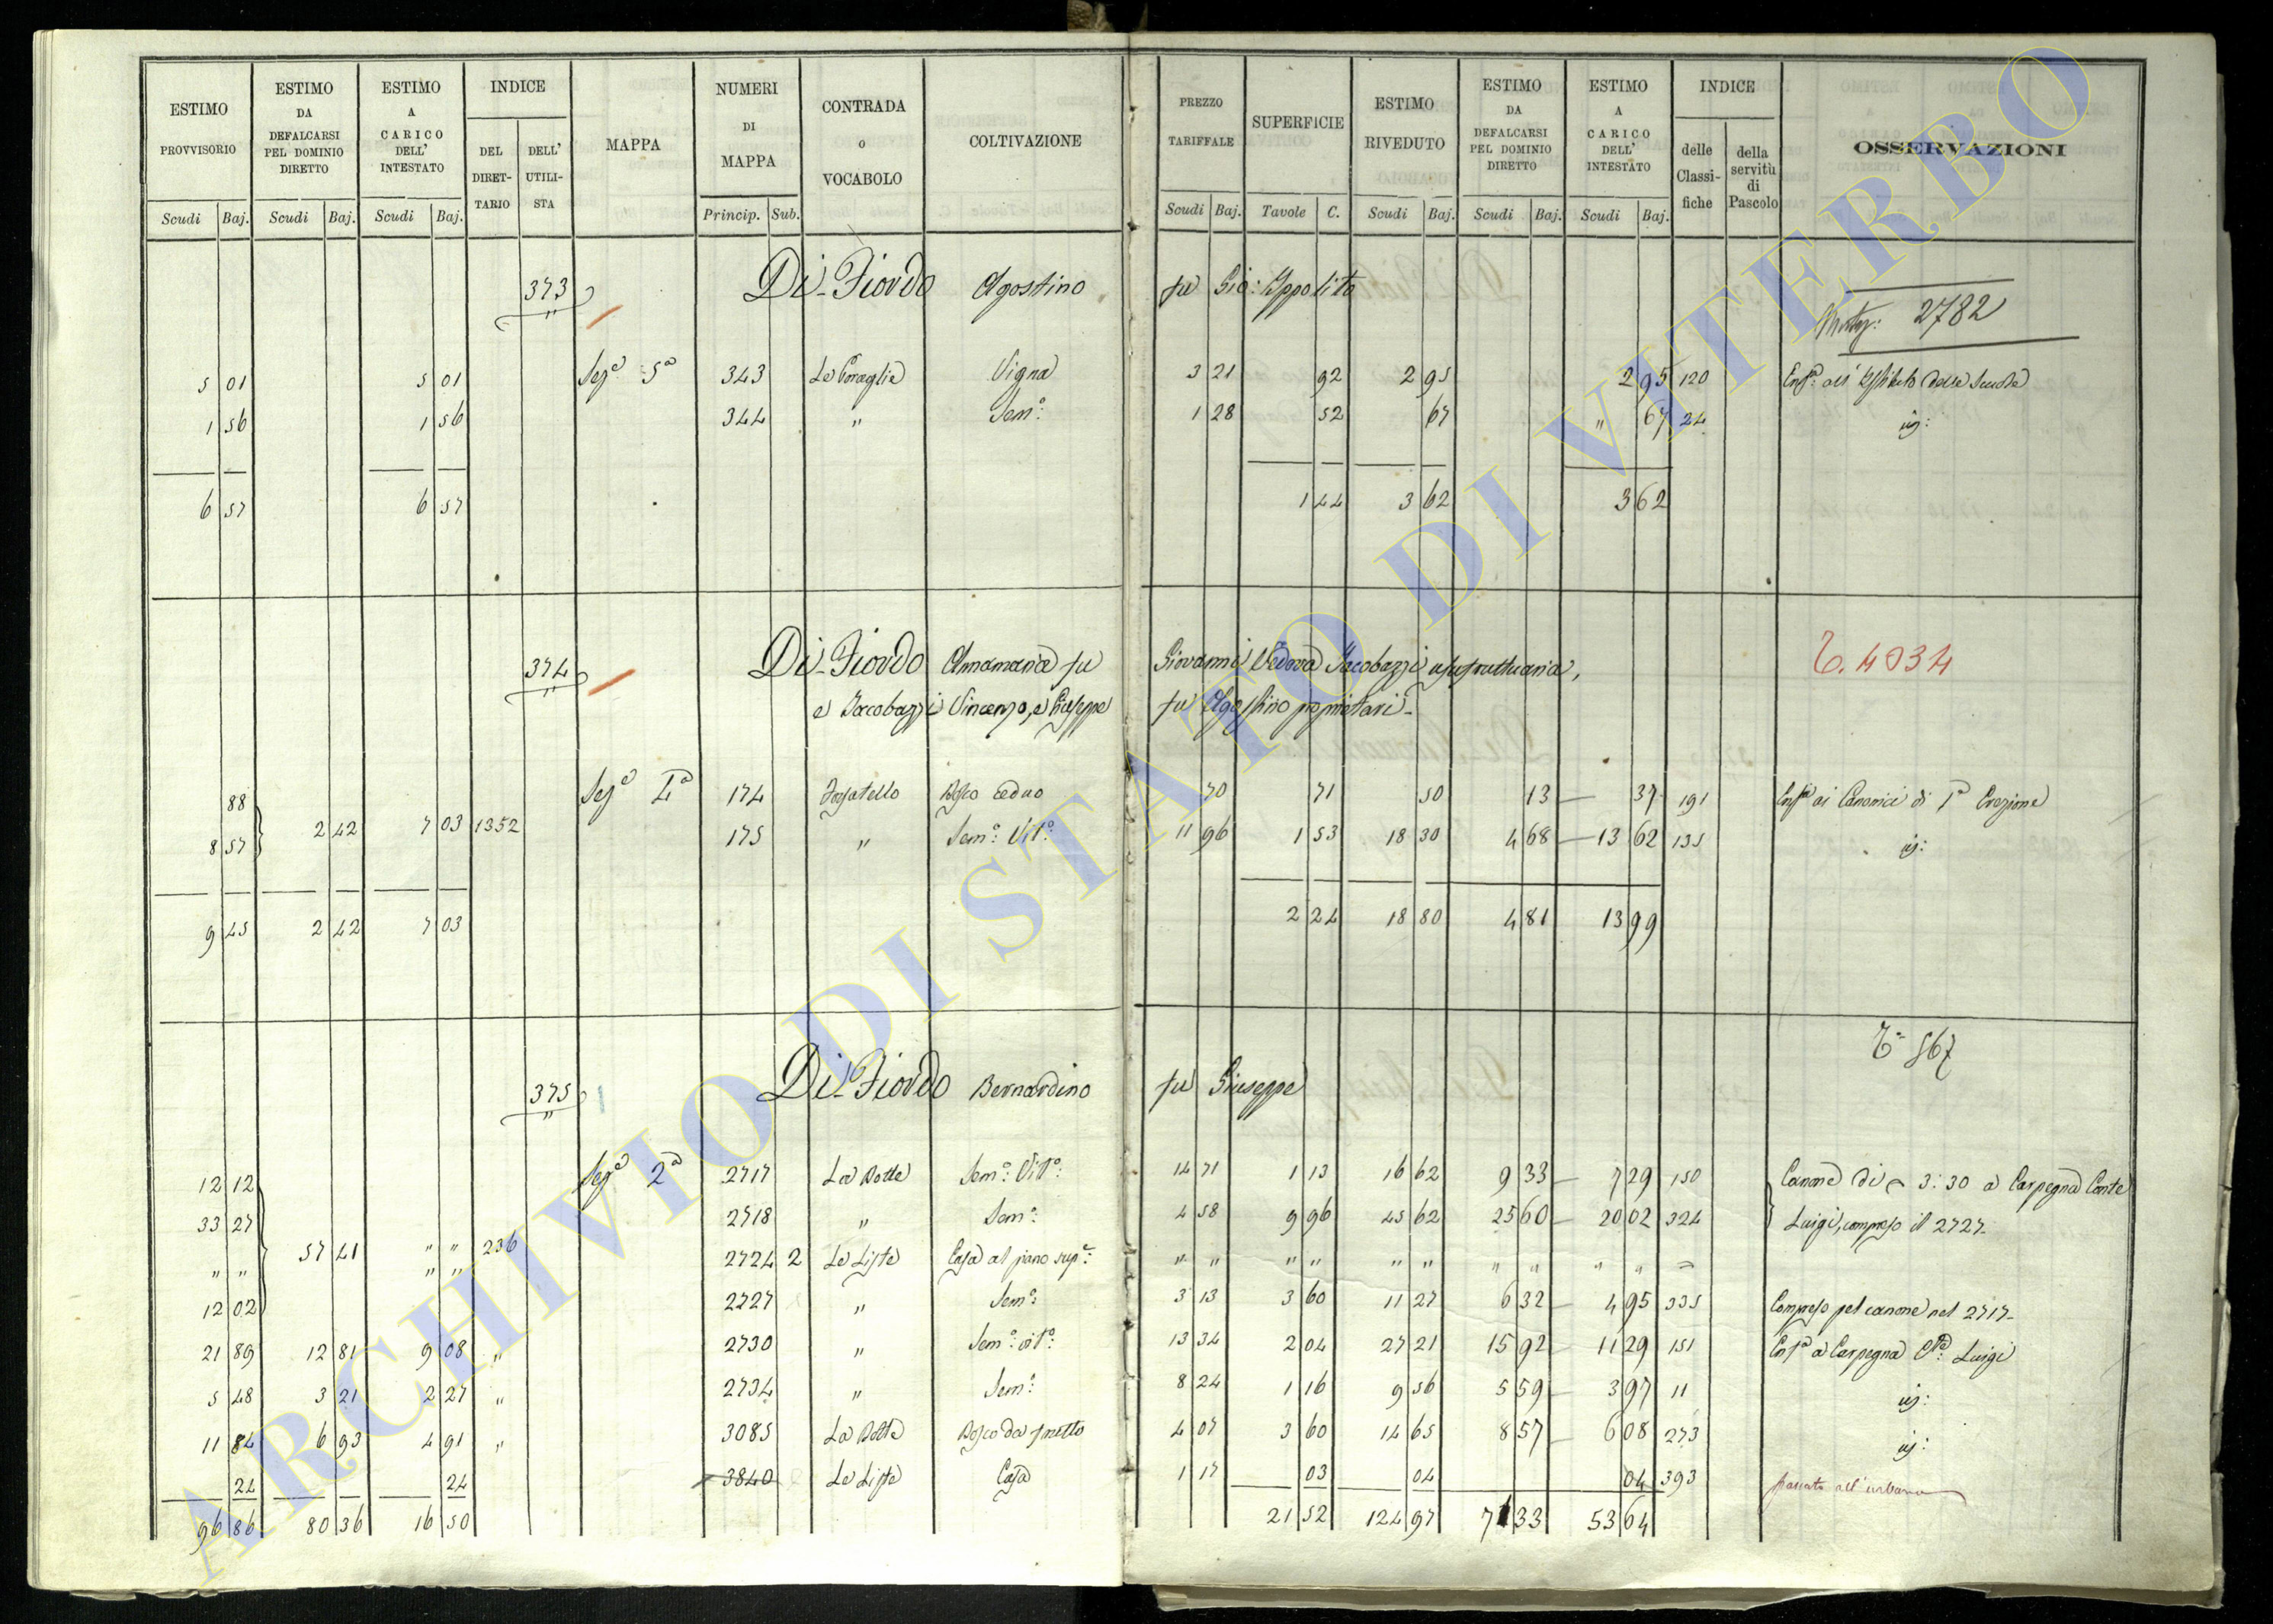 ESTIMO PROVVISORIO | ESTIMO DA DEFALCARSI PEL DOMINIO DIRETTO | ESTIMO A CARICO DELL' INTESTATO | INDICE DEL DIRET-TARIO | DELL' UTILI-STA | MAPPA | NUMERI DI MAPPA | CONTRADA O VOCABOLO | COLTIVAZIONE | PREZZO TARIFFALE | SUPERFICIE | ESTIMO RIVEDUTO | ESTIMO DA DEFALCARSI PEL DOMINIO DIRETTO | ESTIMO A CARICO DELL' INTESTATO | INDICE delle Classi-fiche | della servitù di Pascolo | OSSERVAZIONI
Scudi Baj. Scudi Baj. Scudi Baj. Princip. Sub. Scudi Baj. Tavole C. Scudi Baj. Scudi Baj. Scudi Baj.
373 " Di-Fiordo Agostino fu Gio: Ippolito
2782
5 01 5 01 Sez.e 5a 343 Vigna 3 21 92 2 95 2 95 120 Enf.a all' Istituto delle Scuole
1 56 1 56 344 " Sem.o: 1 28 52 67 " 67 24 id:
6 57 6 57 1 44 3 62 3 62
T. 4034
374 " Di-Fiordo Annamaria fu Giovanni Vedova Jacobazzi usufruttuaria,
e Jacobazzi Vincenzo, e Giuseppe fu Agostino proprietari-
88 Sez.e 174 Fossatello Bosco ceduo 70 71 50 13 37 191 Enf.a ai Canonici di 1a Erezione
8 57 2 42 7 03 1352 175 " Sem.o: Vit.o: 11 96 1 53 18 30 4 68 13 62 135 id:
9 45 2 42 7 03 2 24 18 80 4 81 13 99
T.a 567
375 " Di-Fiordo Bernardino fu Giuseppe
12 12 Sez.e 2a 2717 La Botte Sem.o: Vit.o: 14 71 1 13 16 62 9 33 7 29 150 Canone di 3:30 a Carpegna Conte
33 27 2718 " Sem.o: 4 58 9 96 45 62 25 60 20 02 324 Luigi, compreso il 2727-
" " 57 41 " " 236 2724 2 Le Liste Casa al piano sup.e: " " " " " " " " " "
12 02 " " 2727 " Sem.o: 3 13 3 60 11 27 6 32 4 95 335 Compreso pel canone nel 2717-
21 89 12 81 9 08 " 2730 " Sem.o: vit.o: 13 34 2 04 27 21 15 92 11 29 151 Enf.a a Carpegna Cte: Luigi
5 48 3 21 2 27 " 2734 " Sem.o: 8 24 1 16 9 56 5 59 3 97 11 id:
11 84 6 93 4 91 " 3085 La Botte Bosco da frutto 4 07 3 60 14 65 8 57 6 08 273 id:
24 24 3840 Le Liste Casa 1 17 03 04 04 393 passato all'urbano
96 86 80 36 16 50 21 52 124 97 71 33 53 64
ARCHIVIO DI STATO DI VITERBO